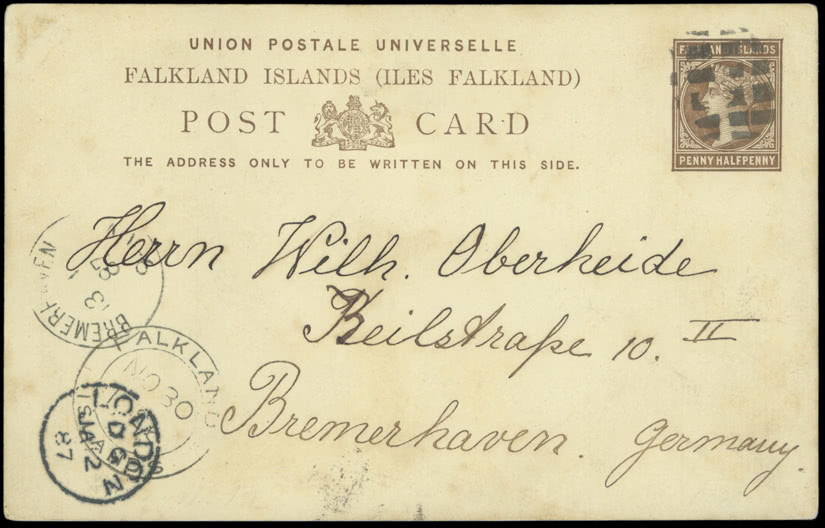 UNION POSTALE UNIVERSELLE
FALKLAND ISLANDS (ILES FALKLAND)
POST CARD
THE ADDRESS ONLY TO BE WRITTEN ON THIS SIDE.
FALKLAND ISLANDS
PENNY HALFPENNY
Herrn Wilh. Oberheide
Keilstraße 10. II
Bremerhaven. Germany.
BREMERHAVEN
FALKLAND ISLANDS
NO 30
LONDON
87